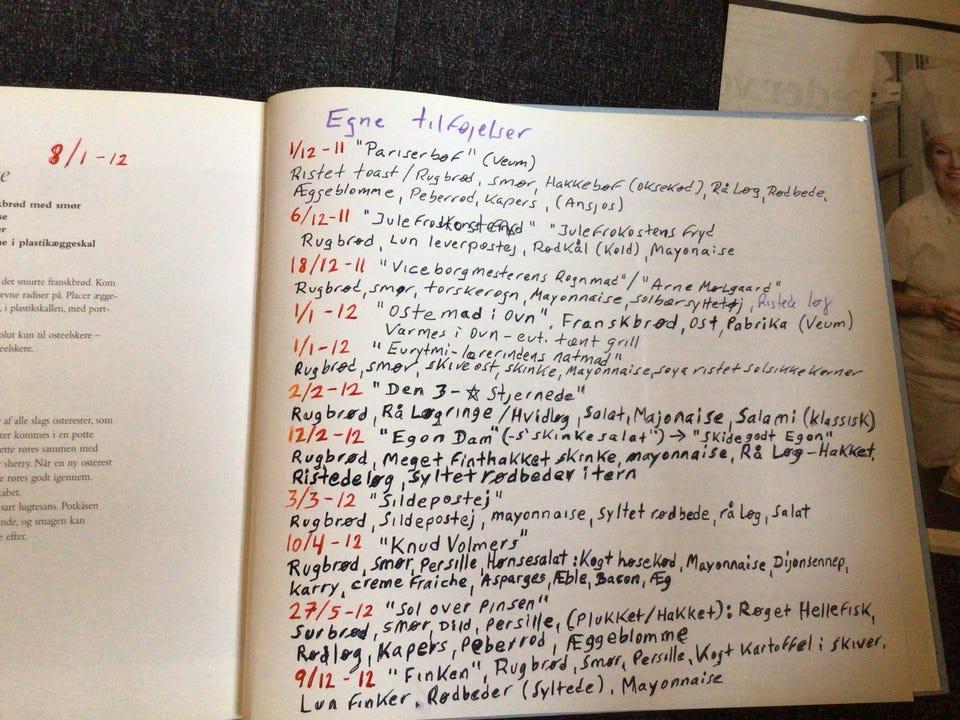 8/1-12
kbrød med smør
e i plastikæggeskal
det smurte franskbrød. Kom
evne radiser på. Placer ægge-
, i plastikskallen, med port-
olut kun til osteelskere –
eelskere.
af alle slags osterester, som
ter kommes i en potte
ette røres sammen med
sherry. Når en ny osterest
e røres godt igennem.
abet.
sart lugtesans. Potkäsen
nde, og smagen kan
efter.
Egne tilføjelser
1/12-11 "Pariserbøf" (Veum)
Ristet toast/Rugbrød, smør, Hakkebøf (oksekød), Rå Løg, Rødbede,
Æggeblomme, Peberrod, Kapers, (Ansjos)
6/12-11 "Julefrokostens Fryd
Rugbrød, Lun leverpostej, Rødkål (Kold), Mayonaise
18/12-11 "Viceborgmesterens Rognmad"/"Arne Mølgaard"
Rugbrød, smør, torskerogn, Mayonnaise, solbærsyltetøj, Ristede løg
1/1-12 "Ostemad i Ovn". Franskbrød, Ost, Pabrika (Veum)
Varmes i Ovn-evt. tænt grill
1/1-12 "Eurytmi-lærerindens natmad"
Rugbrød, smør, skiveost, skinke, Mayonnaise, soya ristet solsikkekerner
2/2-12 "Den 3-☆ Stjernede"
Rugbrød, Rå Løgringe/Hvidløg, Salat, Majonaise, Salami (klassisk)
12/2-12 "Egon Dam" (-s' skinkesalat") → "Skidegodt Egon"
Rugbrød, Meget finthakket skinke, mayonnaise, Rå Løg-Hakket,
Ristede løg, Syltet rødbeder i tern
3/3-12 "Sildepostej"
Rugbrød, Sildepostej, mayonnaise, syltet rødbede, rå løg, salat
10/4-12 "Knud Volmers"
Rugbrød, smør, Persille, Hønsesalat: Kogt høsekød, Mayonnaise, Dijonsennep,
Karry, creme Fraiche, Asparges, Æble, Bacon, Æg
27/5-12 "Sol over Pinsen"
Surbrød, smør, Dild, Persille, (Plukket/Hakket): Røget Hellefisk,
Rødløg, Kapers, Peberrod, Æggeblomme
9/12-12 "Finken", Rugbrød, Smør, Persille, Kogt Kartoffel i skiver,
Lun Finker, Rødbeder (Syltede), Mayonnaise